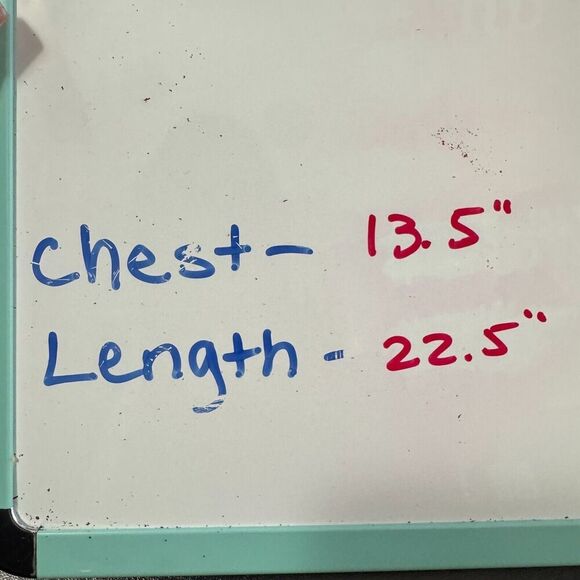 Chest- 13.5"
Length - 22.5"